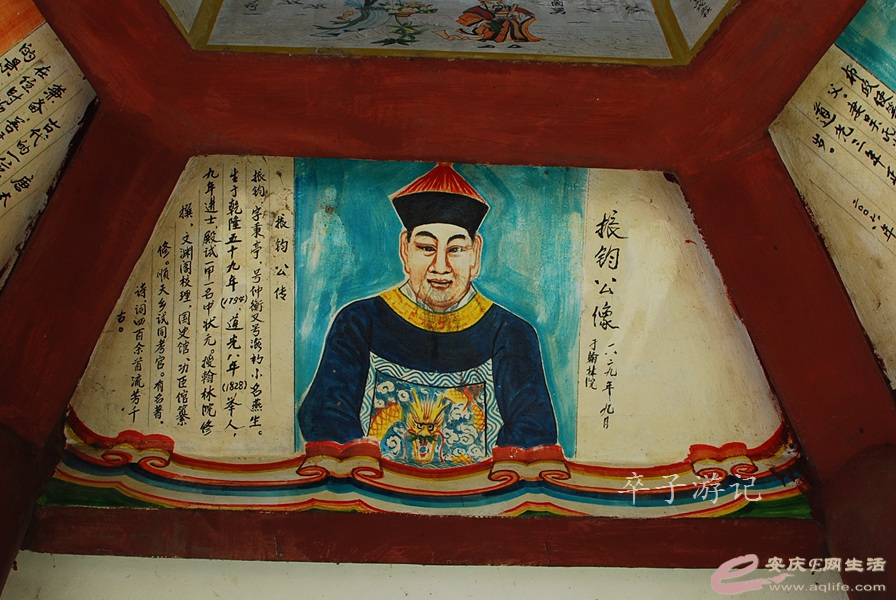 振钧公像
一八二九年九月
于翰林院
振钧公传
振钧，字秉亭，号仲衡又号海杓小名燕生。
生于乾隆五十九年(1794)，道光八年(1828)举人，
九年进士，殿试一甲一名中状元。授翰林院修
撰，文渊阁校理，国史馆、功臣馆纂
修。顺天乡试同考官。有名著。
诗词四百余首流芳千
古。
二〇〇六年
道光。
在位时
古代的一位
唐太
卒子游记
安庆E网生活
www.aqlife.com